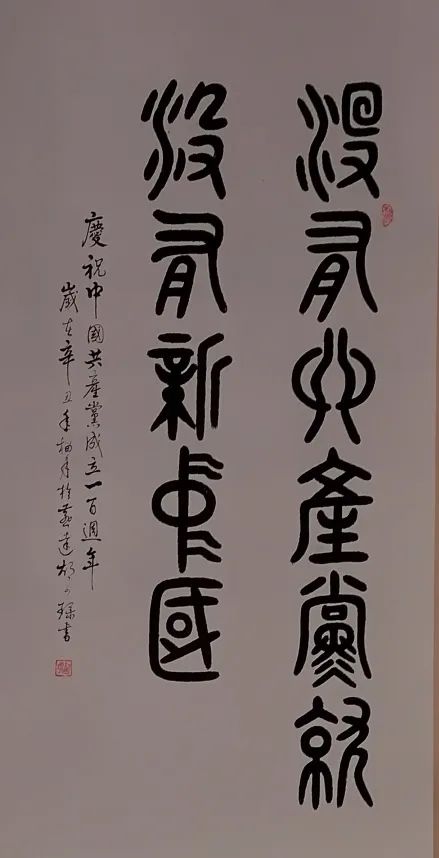 沒有共產黨就
沒有新中國
慶祝中國共產黨成立一百週年
歲在辛丑年
書